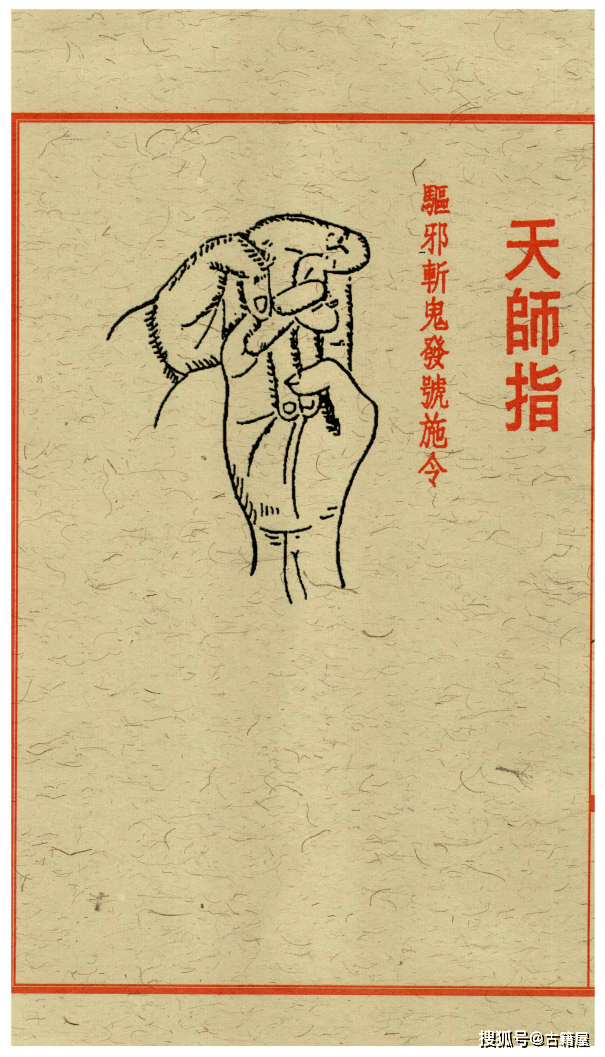 天師指
驅邪斬鬼發號施令
搜狐号@古籍屋